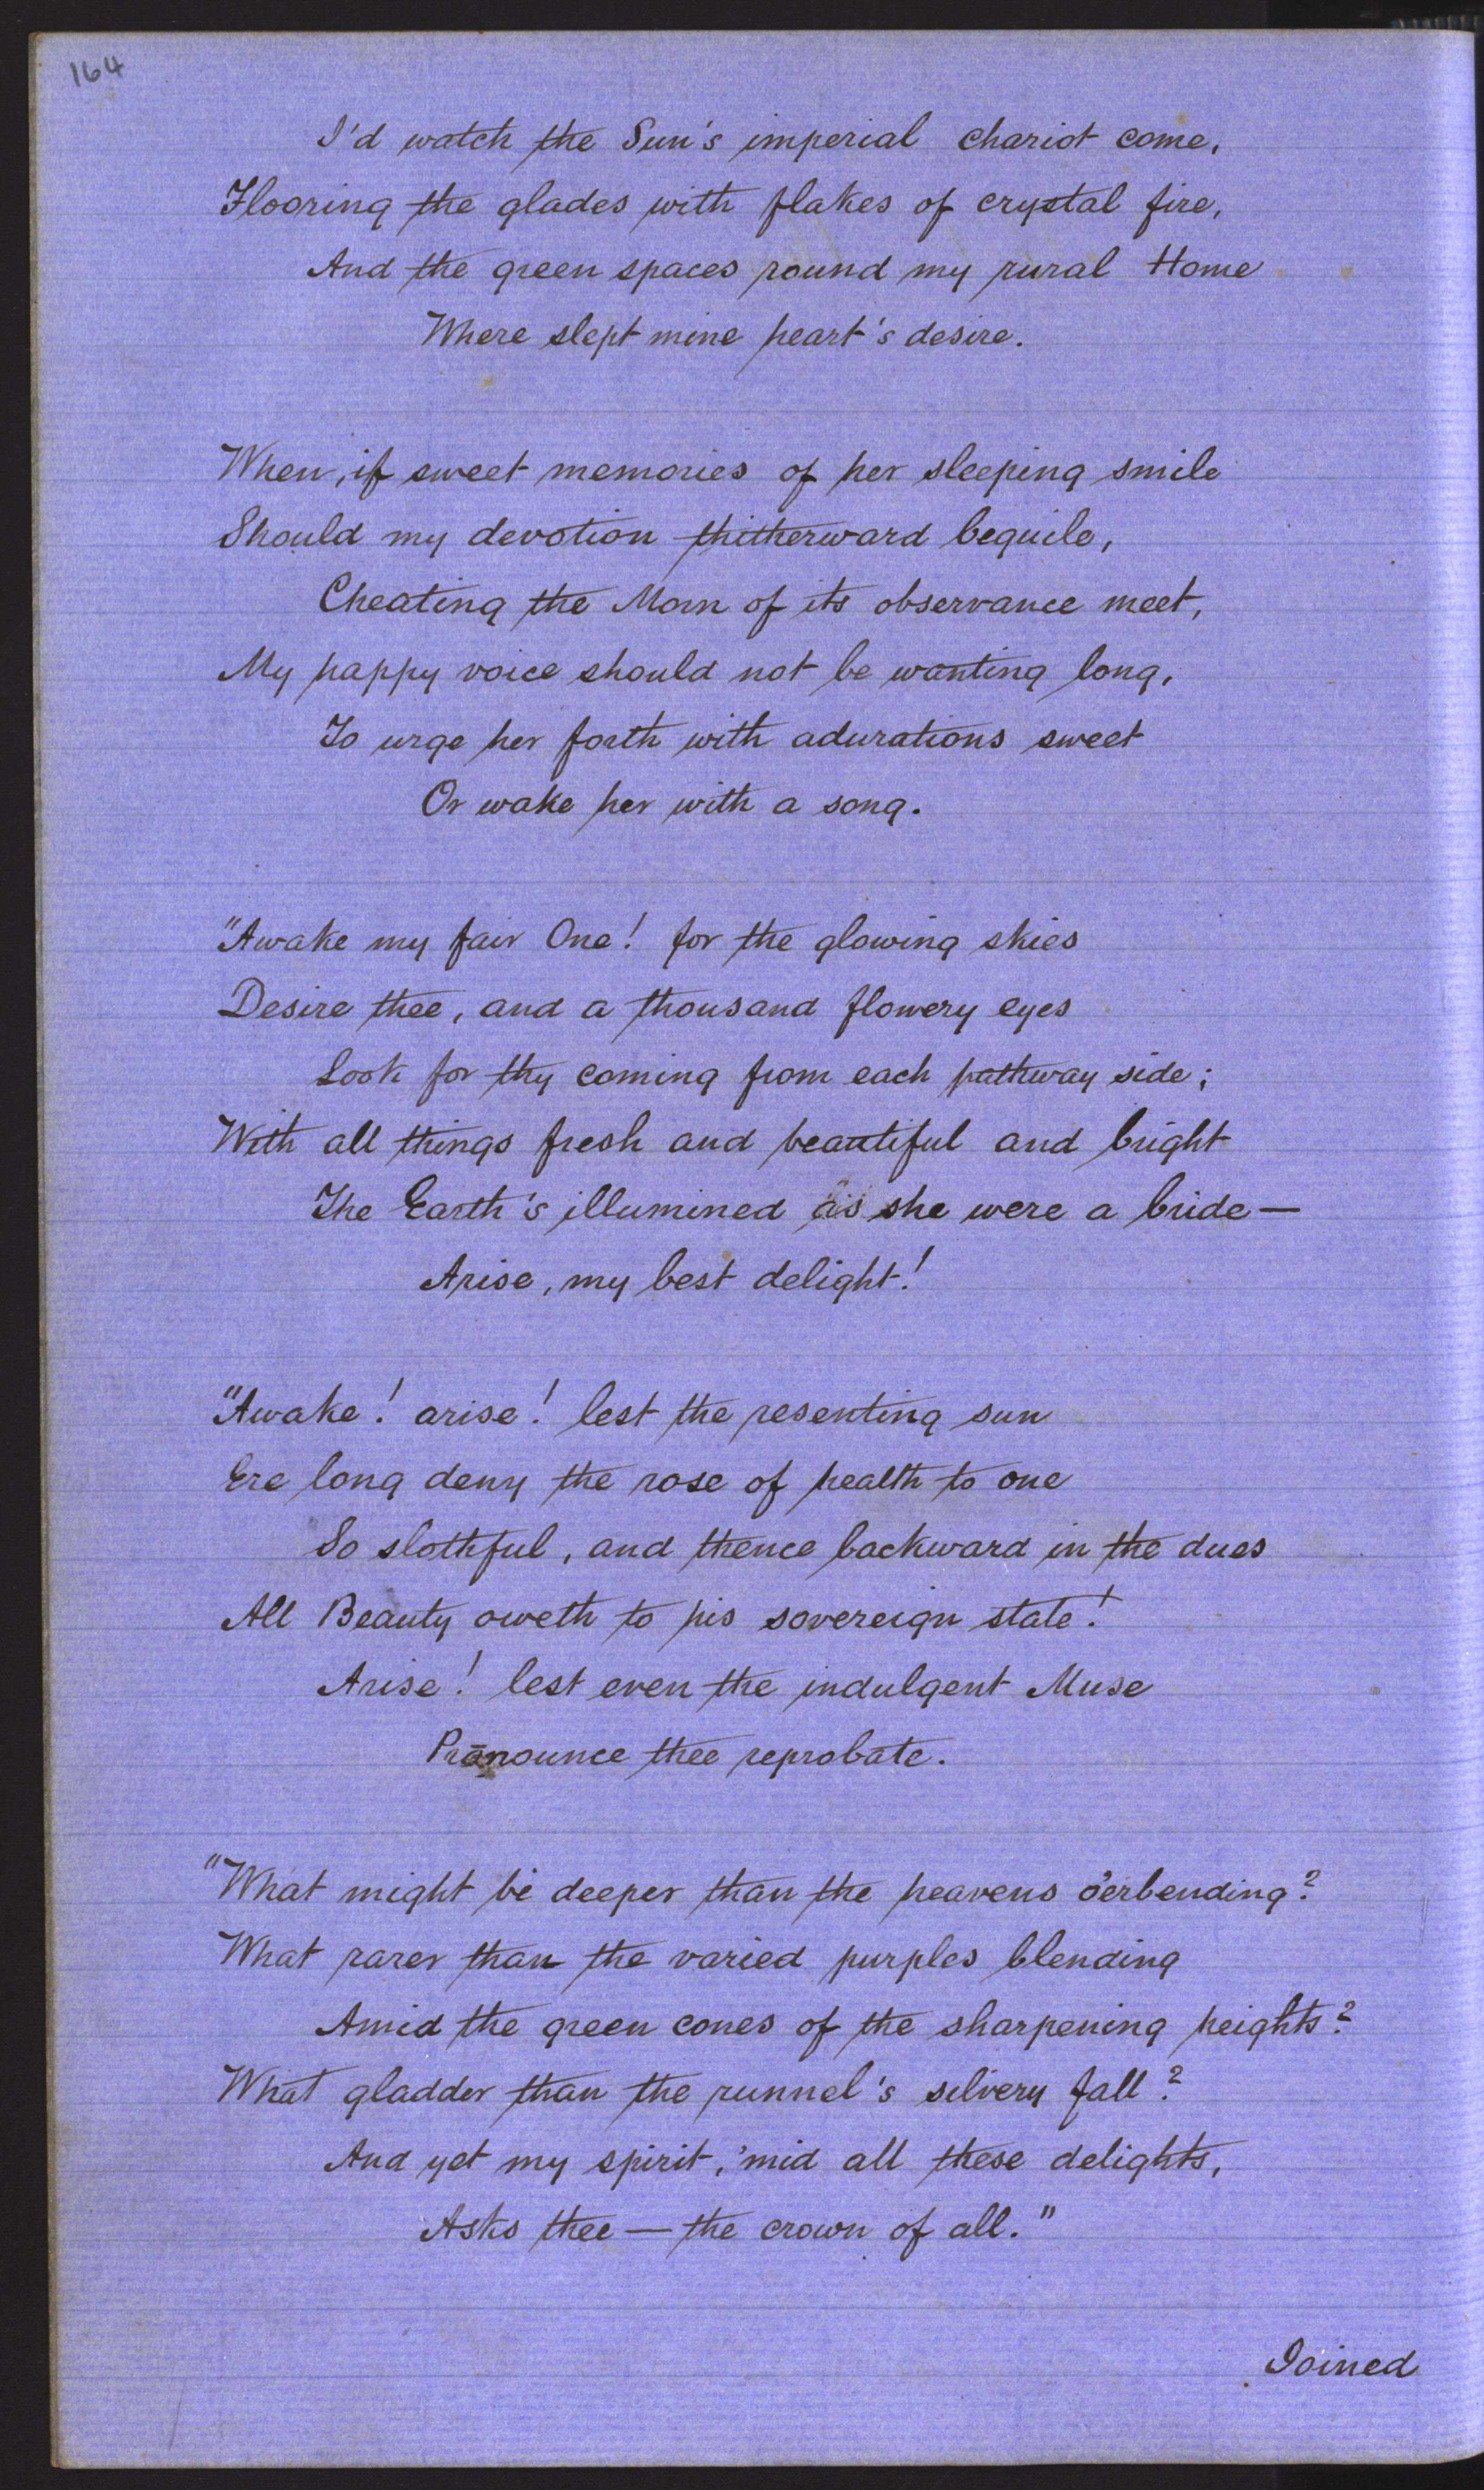 164
I'd watch the Sun's imperial chariot come,
Flooring the glades with flakes of crystal fire,
And the green spaces round my rural Home
Where slept mine heart's desire.
When, if sweet memories of her sleeping smile
Should my devotion thitherward beguile,
Cheating the Morn of its observance meet,
My happy voice should not be wanting long,
To urge her forth with adurations sweet
Or wake her with a song.
"Awake my fair One! for the glowing skies
Desire thee, and a thousand flowery eyes
Look for thy coming from each pathway side;
With all things fresh and beautiful and bright
The Earth's illumined as she were a bride—
Arise, my best delight!
"Awake! arise! lest the resenting sun
Ere long deny the rose of health to one
So slothful, and thence backward in the dues
All Beauty oweth to his sovereign state!
Arise! lest even the indulgent Muse
Pronounce thee reprobate.
"What might be deeper than the heavens o'erbending?
What rarer than the varied purples blending
Amid the green cones of the sharpening heights?
What gladder than the runnel's silvery fall?
And yet my spirit, 'mid all these delights,
Asks thee — the crown of all."
Joined